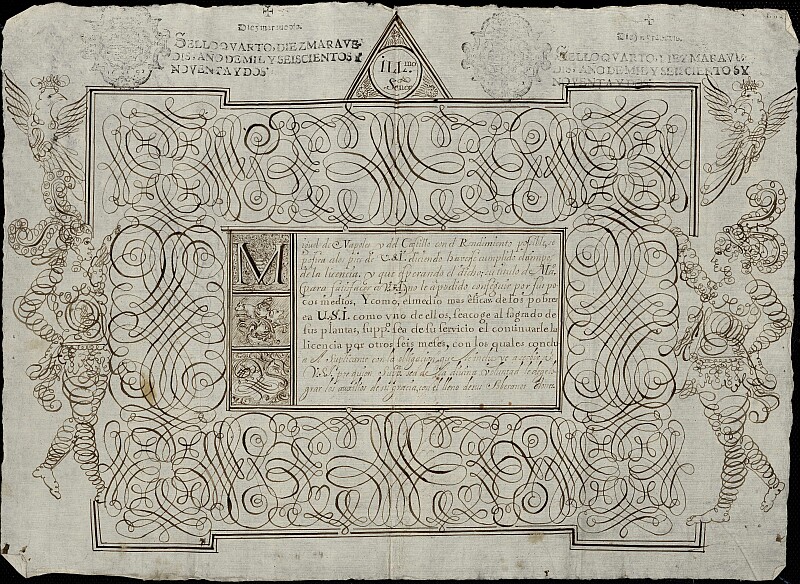 Diez maravedis.
SELLO QVARTO, DIEZ MARAVE-
DIS, AÑO DE MIL Y SEISCIENTOS Y
NOVENTA Y DOS
Diez maravedis.
SELLO QVARTO, DIEZ MARAVE-
DIS, AÑO DE MIL Y SEISCIENTOS Y
NOVENTA Y
Ill.mo
Señor
Miguel de Napoles y del Castillo con el Rendimiento posible, se
a los pies de V.S.I. diciendo cumplido el tiempo
de la licencia, y que esperando el titulo de
para satisfacer no le a podido conseguir por sus po
cos medios, Y como, el medio mas eficaz de los pobres
ea V.S.I. como vno de ellos, se acoge al sagrado de
sus plantas, supp.ca sea de su servicio el continuarle la
licencia por otros seis meses, con los quales conclu
el Suplicante con la obligacion que
V.S.I. por quien de la divina voluntad
grar los auxilios de su gracia, con el lleno de